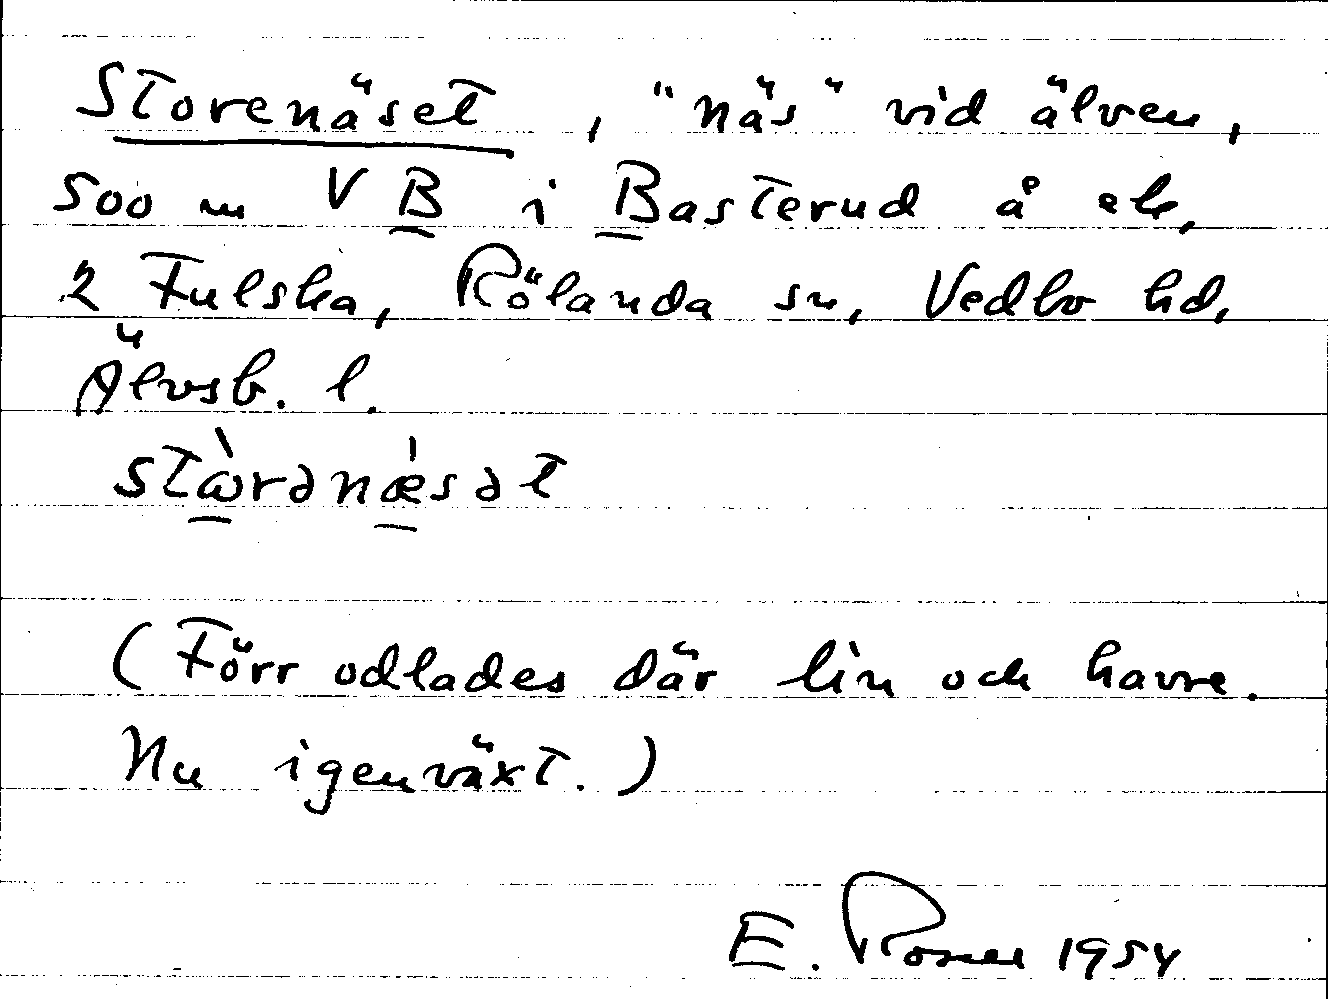 Storenäset, "näs" vid älven,
500 m V B i Basterud å ek.
2 Fulska, Rölanda sn, Vedbo hd,
Älvsb. l.
stωrənæsət
(Förr odlades där lin och havre.
Nu igenväxt.)
E. 1954